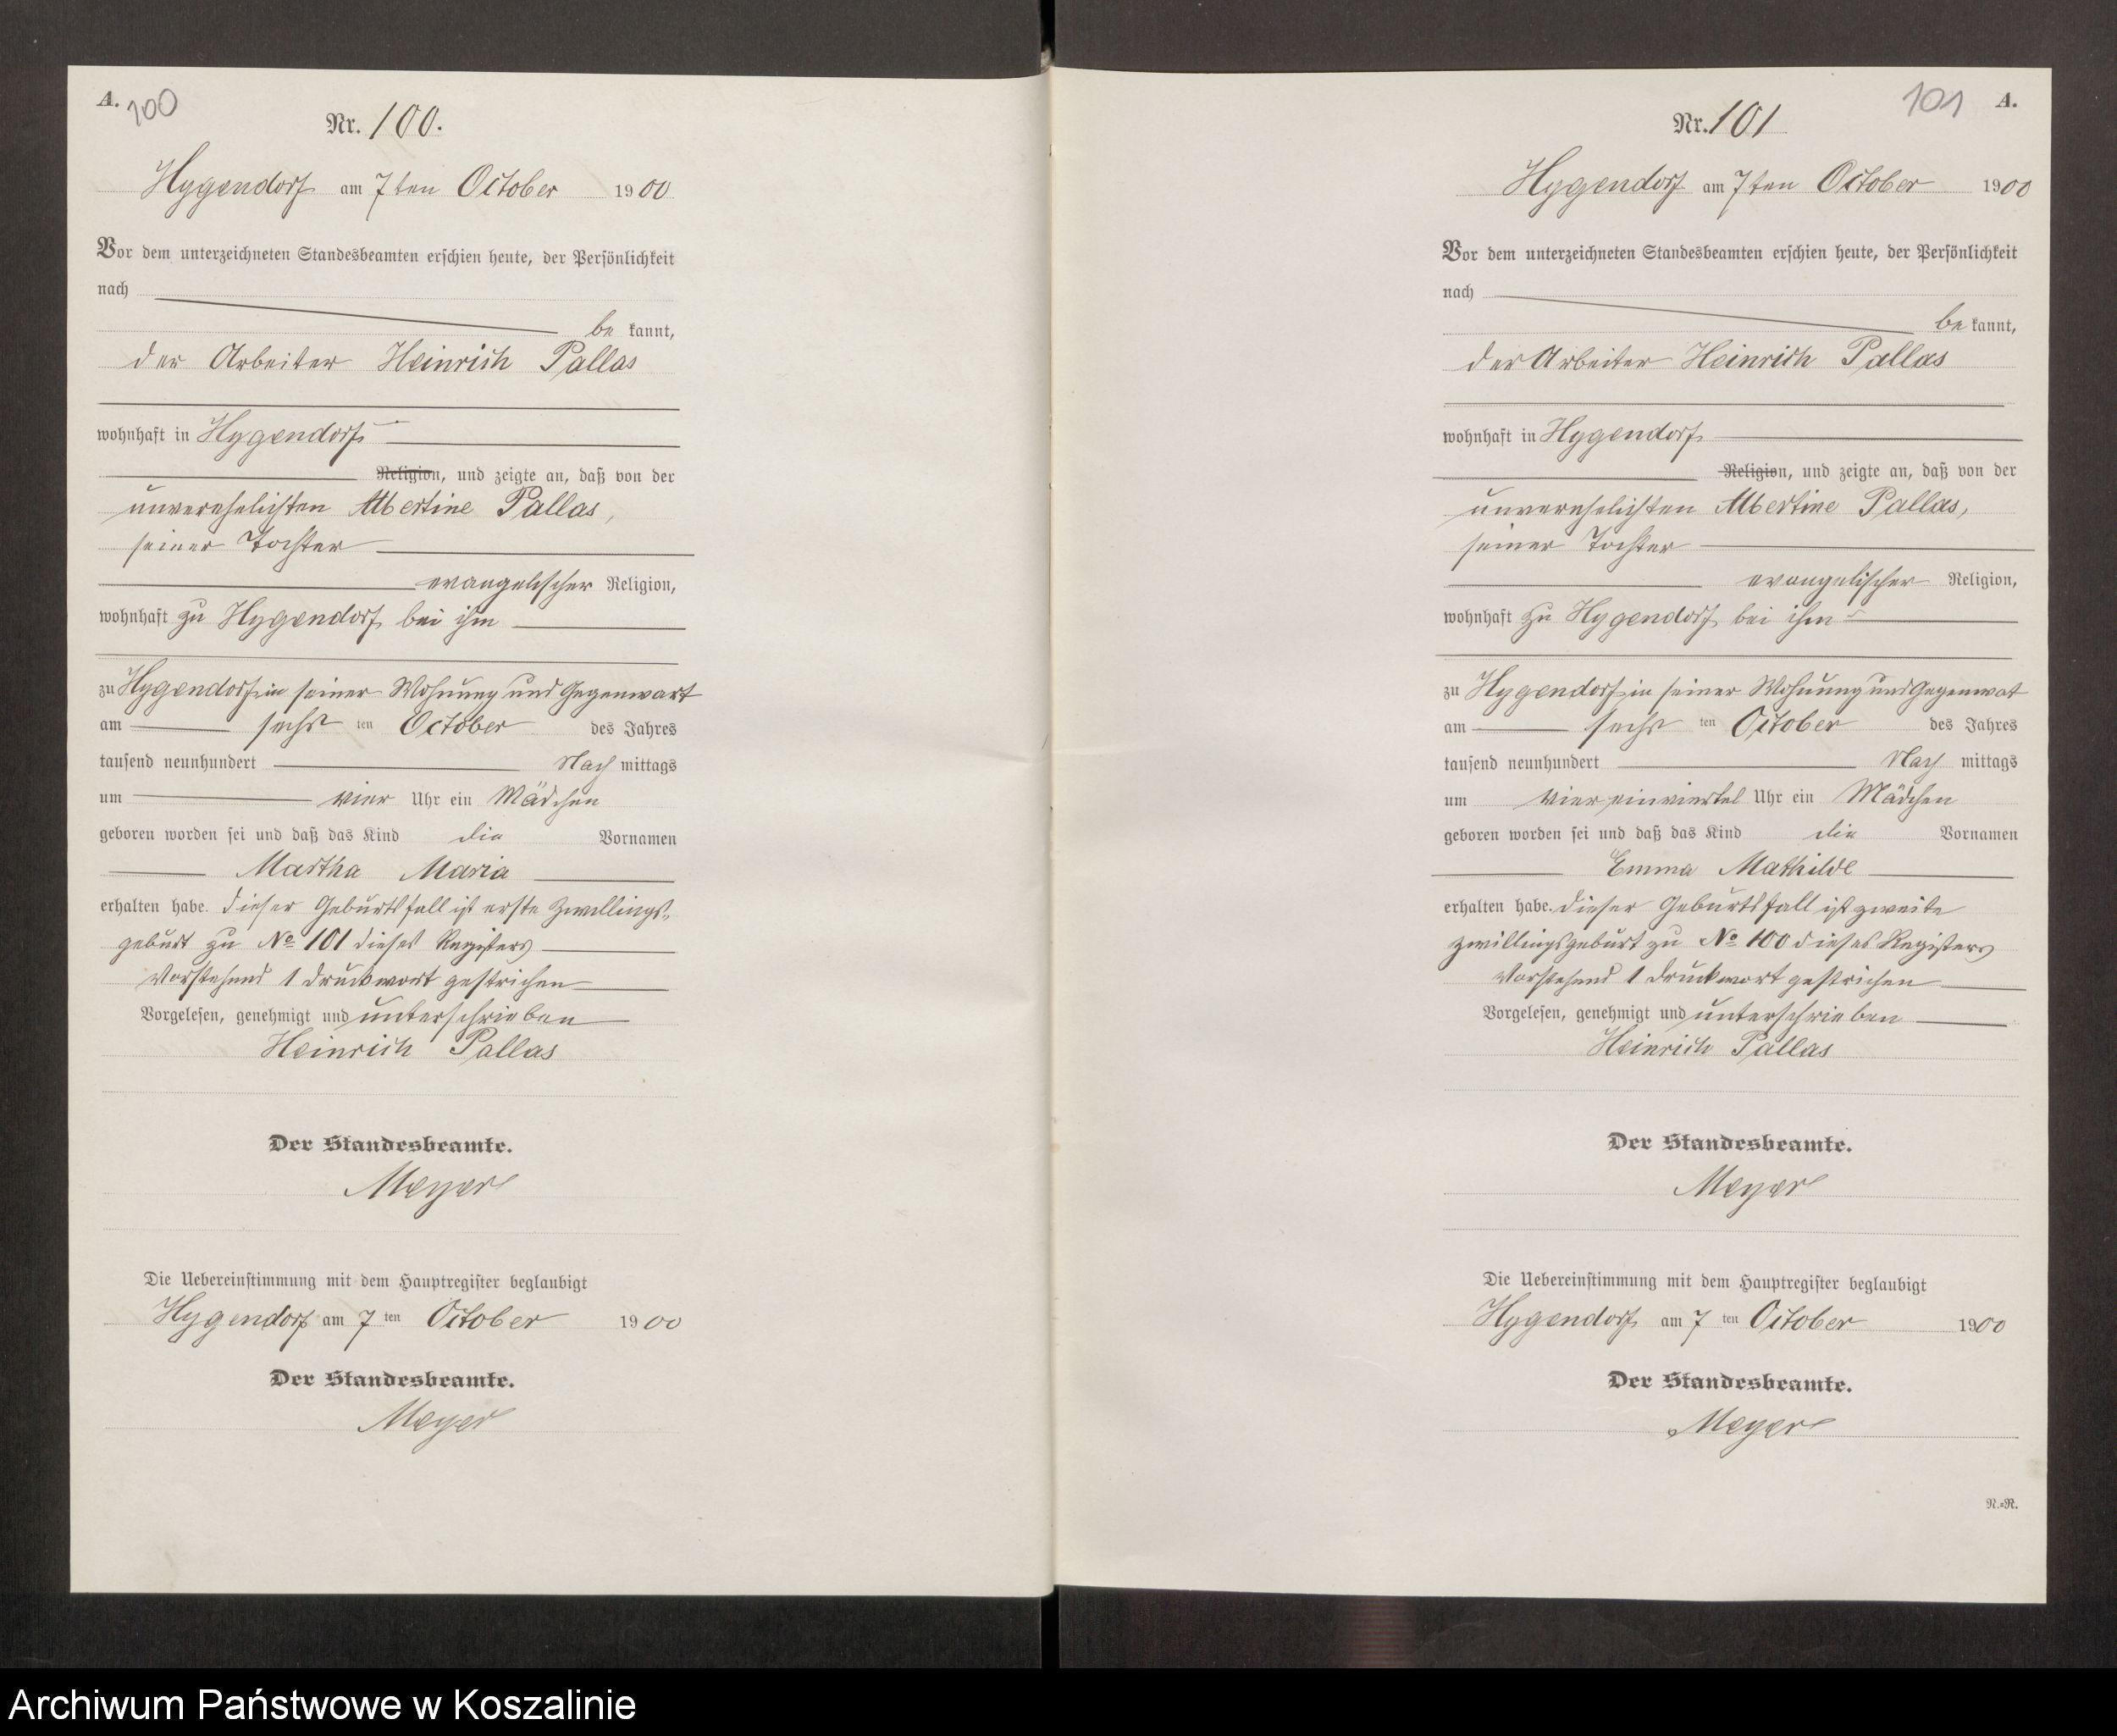 A.
100
Nr. 100.
Hygendorf am 7ten October 1900
Vor dem unterzeichneten Standesbeamten erschien heute, der Persönlichkeit
nach
be kannt,
der Arbeiter Heinrich Pallas
wohnhaft in Hygendorf
Religion, und zeigte an, daß von der
unverehelichten Albertine Pallas,
seiner Tochter
evangelischer Religion,
wohnhaft zu Hygendorf bei ihm
zu Hygendorf in seiner Wohnung und Gegenwart
am sechs ten October des Jahres
tausend neunhundert Nach mittags
um vier Uhr ein Mädchen
geboren worden sei und daß das Kind die Vornamen
Martha Maria
erhalten habe. Dieser Geburtsfall ist erste Zwillings-
geburt zu No 101 dieses Registers
Vorstehend 1 Druckwort gestrichen
Vorgelesen, genehmigt und unterschrieben
Heinrich Pallas
Der Standesbeamte.
Meyer
Die Uebereinstimmung mit dem Hauptregister beglaubigt
Hygendorf am 7 ten October 1900
Der Standesbeamte.
Meyer
101
A.
Nr. 101
Hygendorf am 7ten October 1900
Vor dem unterzeichneten Standesbeamten erschien heute, der Persönlichkeit
nach
be kannt,
der Arbeiter Heinrich Pallas
wohnhaft in Hygendorf
Religion, und zeigte an, daß von der
unverehelichten Albertine Pallas,
seiner Tochter
evangelischer Religion,
wohnhaft zu Hygendorf bei ihm
zu Hygendorf in seiner Wohnung und Gegenwat
am sechs ten October des Jahres
tausend neunhundert Nach mittags
um vier einviertel Uhr ein Mädchen
geboren worden sei und daß das Kind die Vornamen
Emma Mathilde
erhalten habe. Dieser Geburtsfall ist zweite
Zwillingsgeburt zu No 100 dieses Registers
Vorstehend 1 Druckwort gestrichen
Vorgelesen, genehmigt und unterschrieben
Heinrich Pallas
Der Standesbeamte.
Meyer
Die Uebereinstimmung mit dem Hauptregister beglaubigt
Hygendorf am 7 ten October 1900
Der Standesbeamte.
Meyer
N.=R.
Archiwum Państwowe w Koszalinie